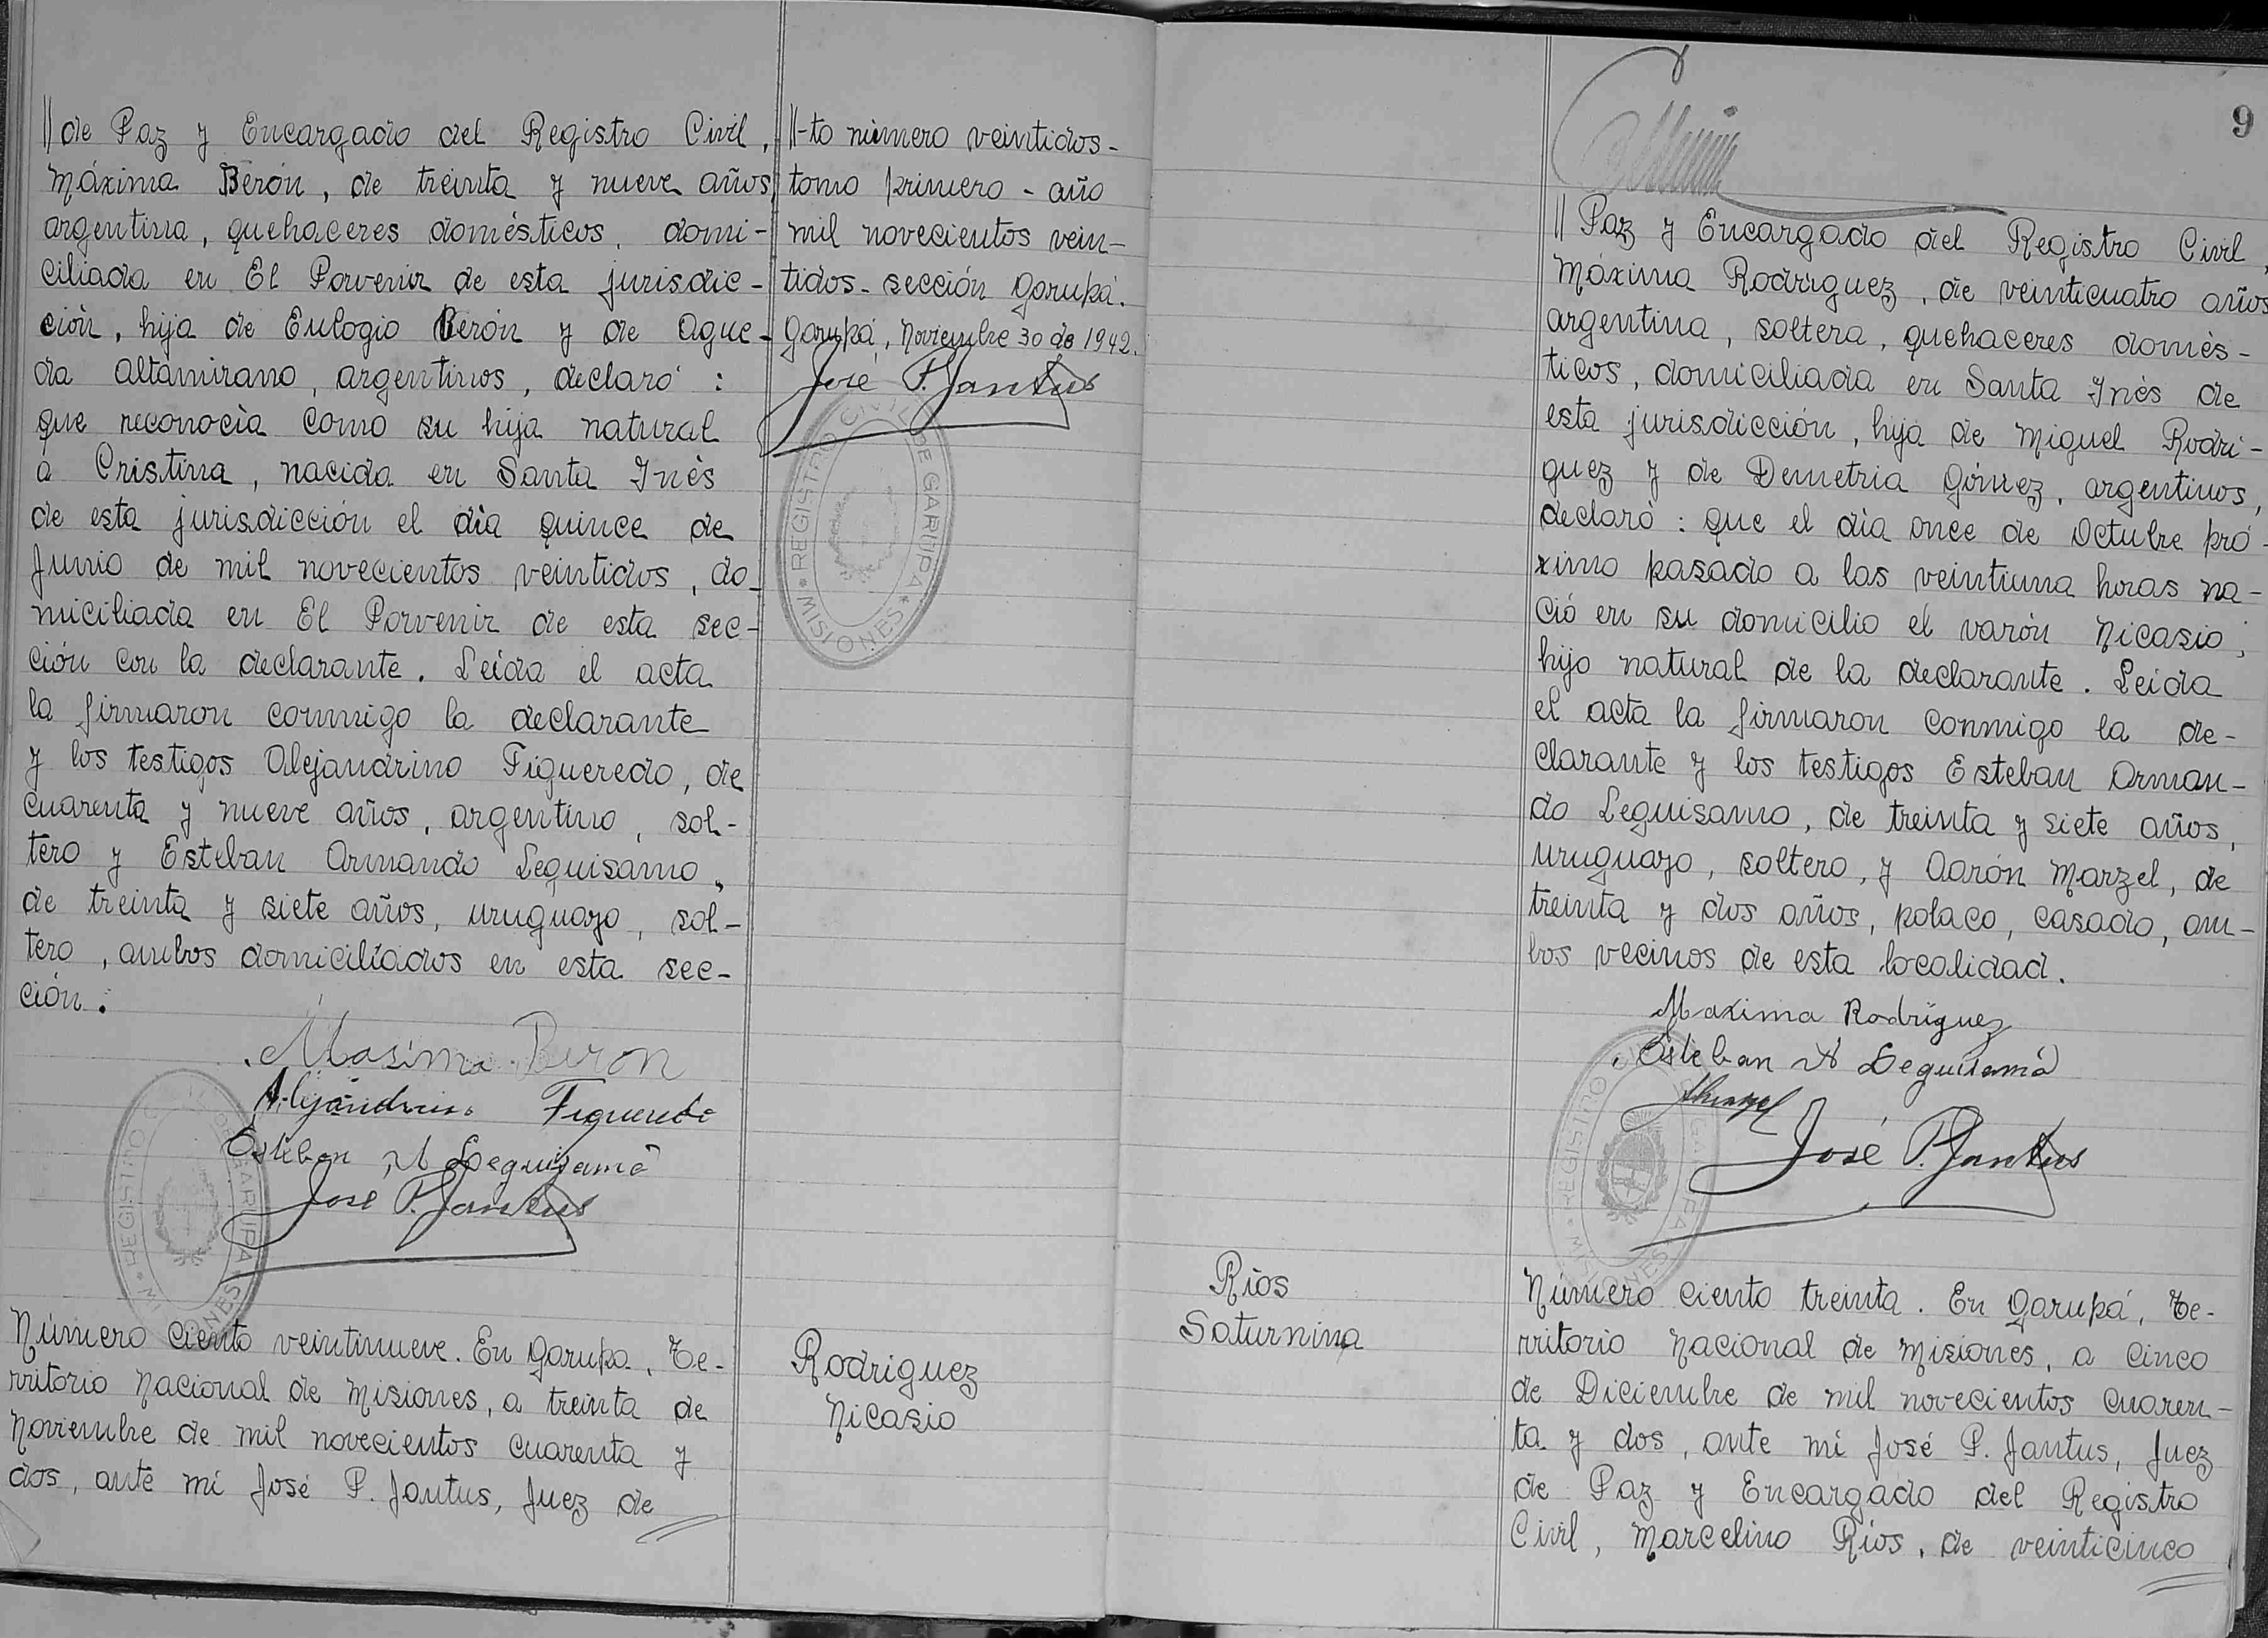 || de Paz y Encargado del Registro Civil,
Máxima Berón, de treinta y nueve años,
argentina, quehaceres domésticos, domi-
ciliada en El Porvenir de esta jurisdic-
ción, hija de Eulogio Berón y de Ague-
da Altamirano, argentinos, declaró :
que reconocía como su hija natural
a Cristina, nacida en Santa Inés
de esta jurisdicción el día quince de
Junio de mil novecientos veintidos, do-
miciliada en El Porvenir de esta sec-
ción con la declarante. Leída el acta
la firmaron conmigo la declarante
y los testigos Alejandrino Figueredo, de
cuarenta y nueve años, argentino, sol-
tero y Esteban Armando Leguisamo,
de treinta y siete años, uruguayo, sol-
tero, ambos domicilíados en esta sec-
ción.
Masima Beron
Alejandrino Figueredo
Esteban A Leguizamo
José P. Jantus
REGISTRO CIVIL DE GARUPA * MISIONES *
Número ciento veintinueve. En Garupa, Te-
rritorio Nacional de Misiones, a treinta de
Noviembre de mil novecientos cuarenta y
dos, ante mí José P. Jantus, Juez de
||-to número veintidos-
tomo primero - año
mil novecientos vein-
tidos - sección Garupá.
Garupá, Noviembre 30 de 1942.
José P. Jantus
REGISTRO CIVIL DE GARUPA * MISIONES *
Rodriguez
Nicasio
Ríos
Saturnina
9
|| Paz y Encargado del Registro Civil,
Máxima Rodríguez, de veinticuatro años
argentina, soltera, quehaceres domés-
ticos, domiciliada en Santa Inés de
esta jurisdicción, hija de Miguel Rodrí-
guez y de Demetria Gómez, argentinos,
declaró : que el día once de Octubre pró-
ximo pasado a las veintiuna horas na-
ció en su domicilio el varón Nicasio,
hijo natural de la declarante. Leída
el acta la firmaron conmigo la de-
clarante y los testigos Esteban Arman-
do Leguisamo, de treinta y siete años,
uruguayo, soltero, y Aarón Marzel, de
treinta y dos años, polaco, casado, am-
bos vecinos de esta localidad.
Maxima Rodriguez
Esteban A Leguisamo
José P. Jantus
Número ciento treinta. En Garupá, Te-
rritorio Nacional de Misiones, a cinco
de Diciembre de mil novecientos cuaren-
ta y dos, ante mí José P. Jantus, Juez
de Paz y Encargado del Registro
Civil, Marcelino Ríos, de veinticinco